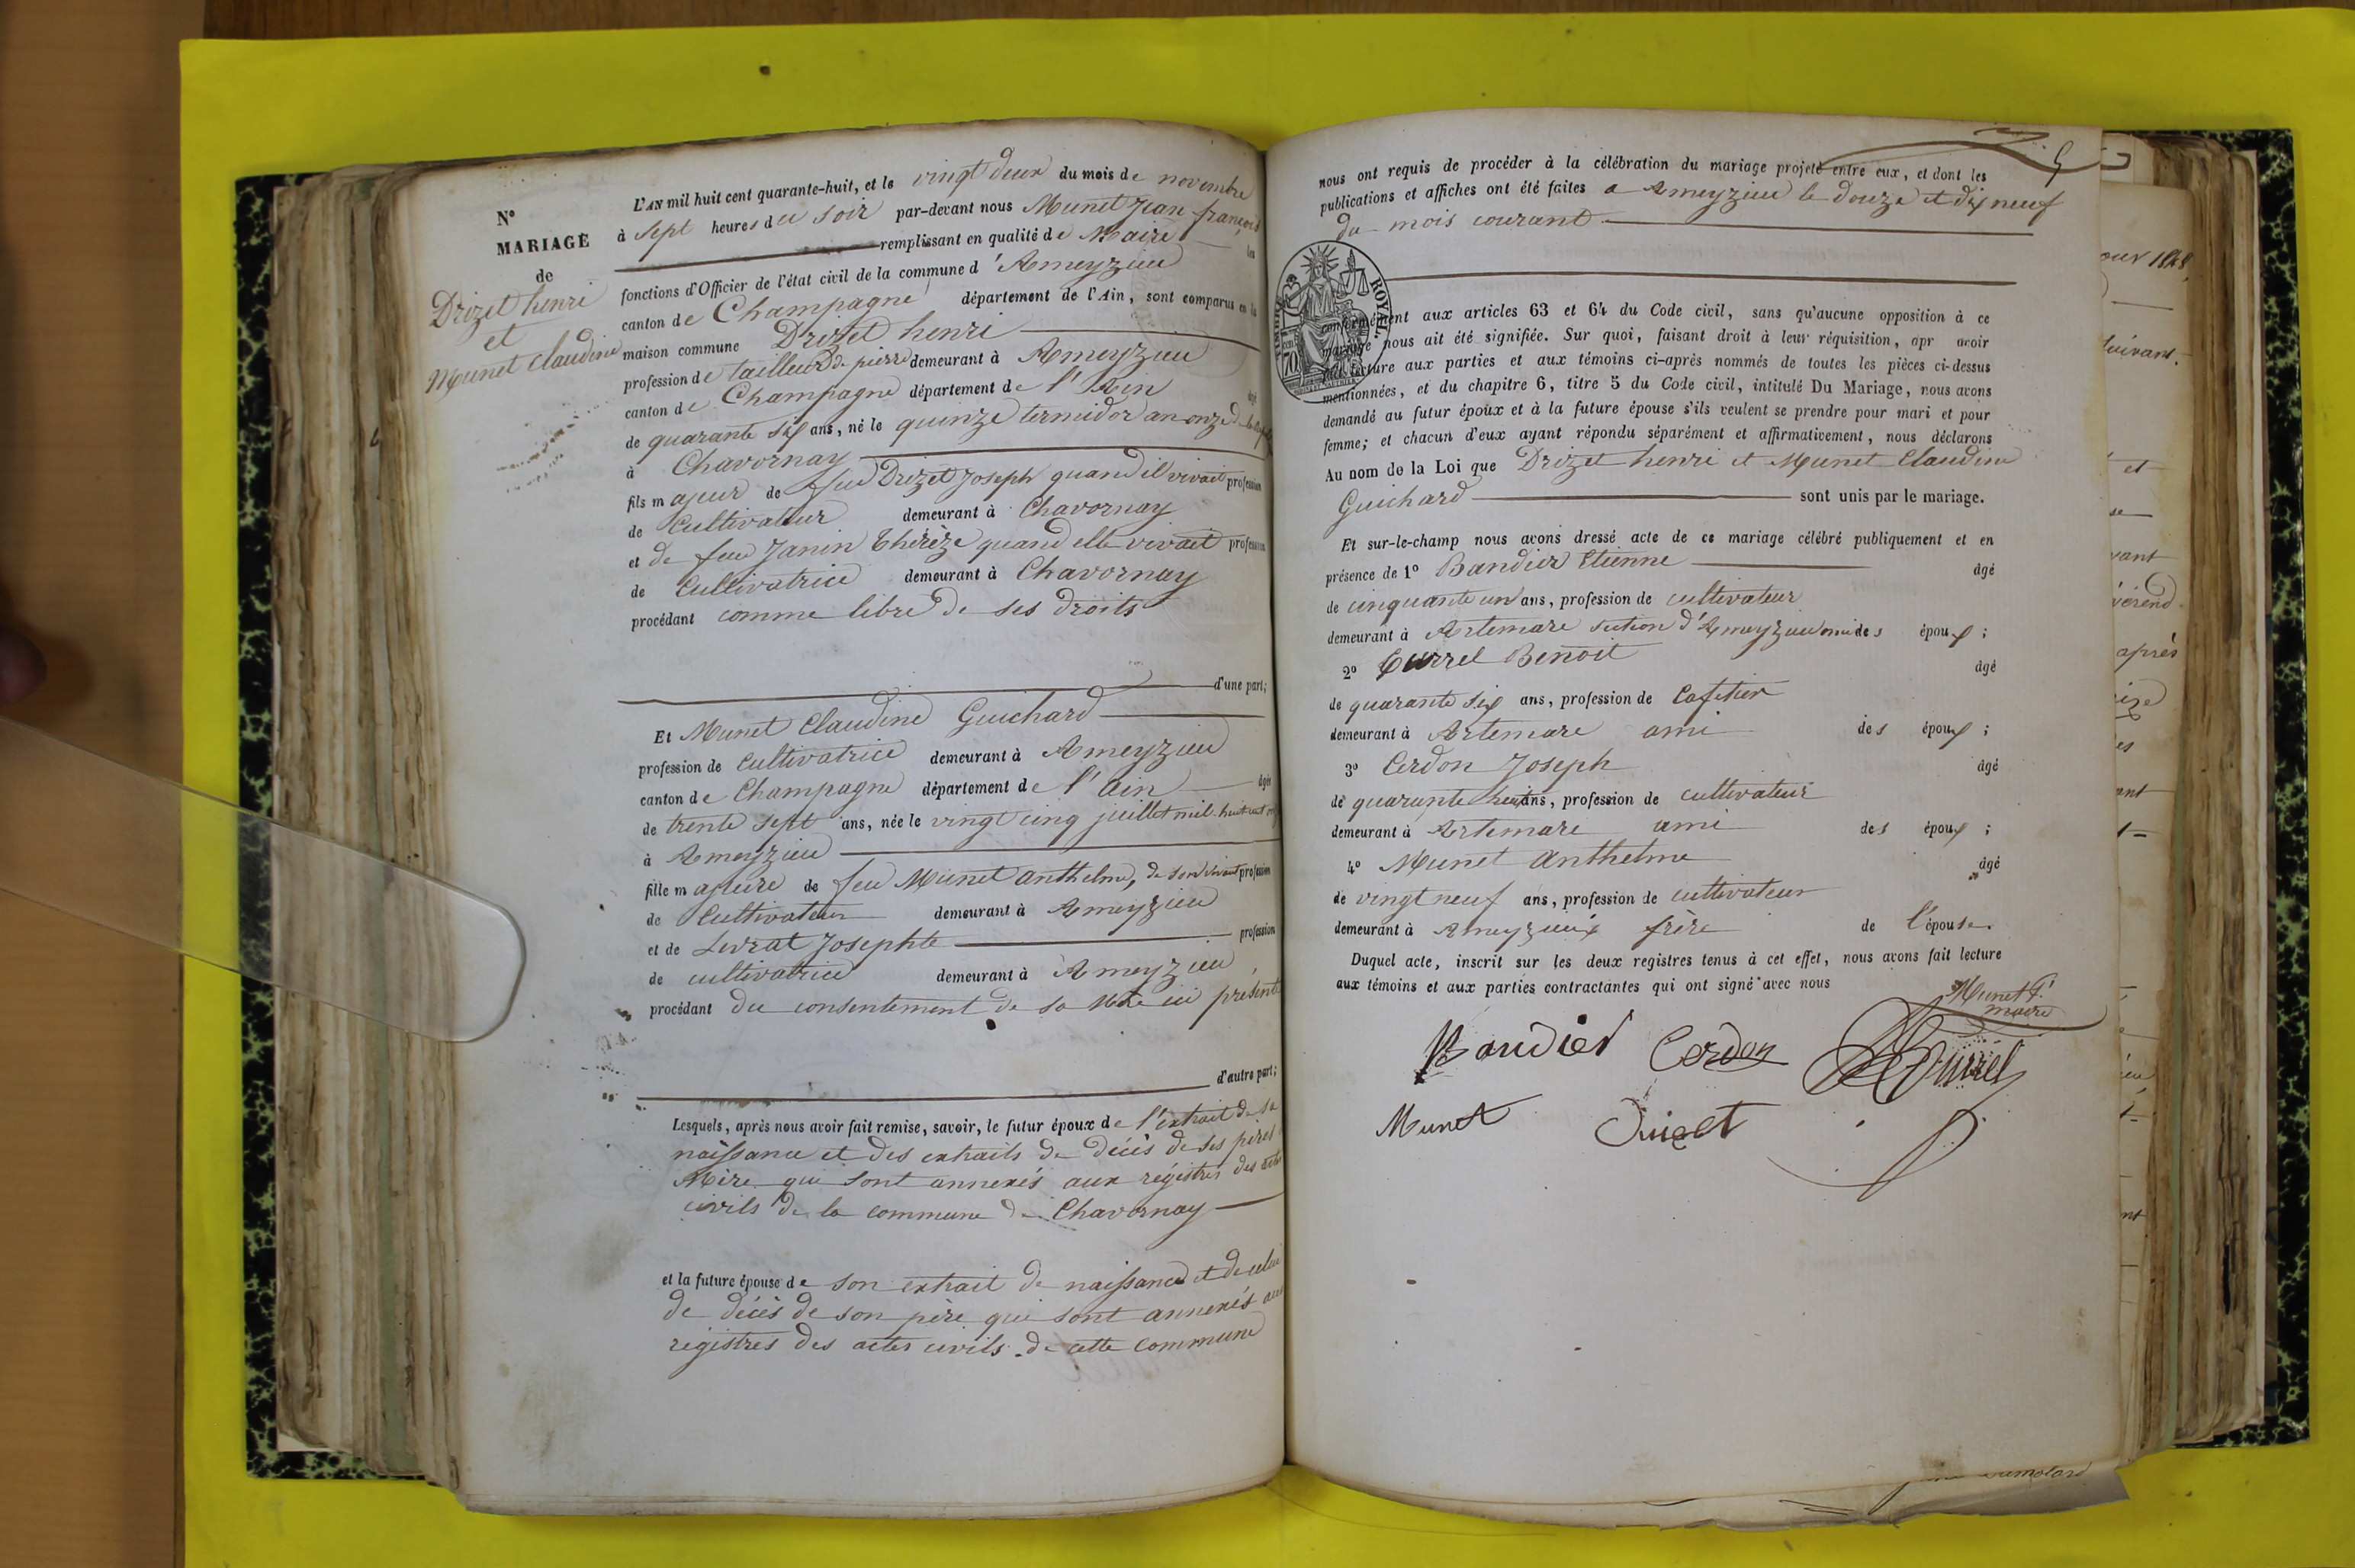 N°
MARIAGE
de
Drizet henri
et
Munet Claudine
L'AN mil huit cent quarante-huit, et le vingt deux du mois de novembre
à sept heures du soir par-devant nous Munet Jean françois
remplissant en qualité de Maire les
fonctions d'Officier de l'état civil de la commune d'Ameyzieu
canton de Champagne département de l'Ain, sont comparus en la
maison commune Drizet henri
profession de tailleur de pierre demeurant à Ameyzieu
canton de Champagne département de l'Ain âgé
de quarante six ans, né le quinze termidor an onze
à Chavornay
fils majeur de feu Drizet Joseph quand il vivait profession
de Cultivateur demeurant à Chavornay
et de feue Janin Thérèze quand elle vivait profession
de Cultivatrice demeurant à Chavornay
procédant comme libre de ses droits
d'une part;
Et Munet Claudine Guichard
profession de Cultivatrice demeurant à Ameyzieu
canton de Champagne département de l'Ain âgée
de trente sept ans, née le vingt cinq juillet mil huit cent
à Ameyzieu
fille majeure de feu Munet Anthelme, de son vivant profession
de Cultivateur demeurant à Ameyzieu
et de Levrat Josephte profession
de cultivatrice demeurant à Ameyzieu
procédant du consentement de sa Mère ici présente
d'autre part;
Lesquels, après nous avoir fait remise, savoir, le futur époux de l'extrait de sa
naissance et des extraits de décès de ses père
Mère qui sont annexés aux régistres des actes
civils de la commune de Chavornay
et la future épouse de son extrait de naissance et de celui
de décès de son père qui sont annexés aux
régistres des actes civils de cette Commune
nous ont requis de procéder à la célébration du mariage projeté entre eux, et dont les
publications et affiches ont été faites a Ameyzieu le douze et dix neuf
du mois courant
ROYAL
70
conformément aux articles 63 et 64 du Code civil, sans qu'aucune opposition à ce
mariage nous ait été signifiée. Sur quoi, faisant droit à leur réquisition, apr avoir
fait lecture aux parties et aux témoins ci-après nommés de toutes les pièces ci-dessus
mentionnées, et du chapitre 6, titre 5 du Code civil, intitulé Du Mariage, nous avons
demandé au futur époux et à la future épouse s'ils veulent se prendre pour mari et pour
femme; et chacun d'eux ayant répondu séparément et affirmativement, nous déclarons
Au nom de la Loi que Drizet henri et Munet Claudine
Guichard sont unis par le mariage.
Et sur-le-champ nous avons dressé acte de ce mariage célébré publiquement et en
présence de 1° Bandier Etienne âgé
de cinquante un ans, profession de cultivateur
demeurant à Artemare section d'Ameyzieu ami des époux;
2° Currel Benoit âgé
de quarante six ans, profession de Cafetier
demeurant à Artemare ami des époux;
3° Cerdon Joseph âgé
de quarante huit ans, profession de cultivateur
demeurant à Artemare ami des époux;
4° Munet Anthelme âgé
de vingt neuf ans, profession de cultivateur
demeurant à Ameyzieux frère de l'épouse.
Duquel acte, inscrit sur les deux registres tenus à cet effet, nous avons fait lecture
aux témoins et aux parties contractantes qui ont signé avec nous
Munet
maire
Bandier Cerdon Currel
Munet
suivant.
et
vant
après